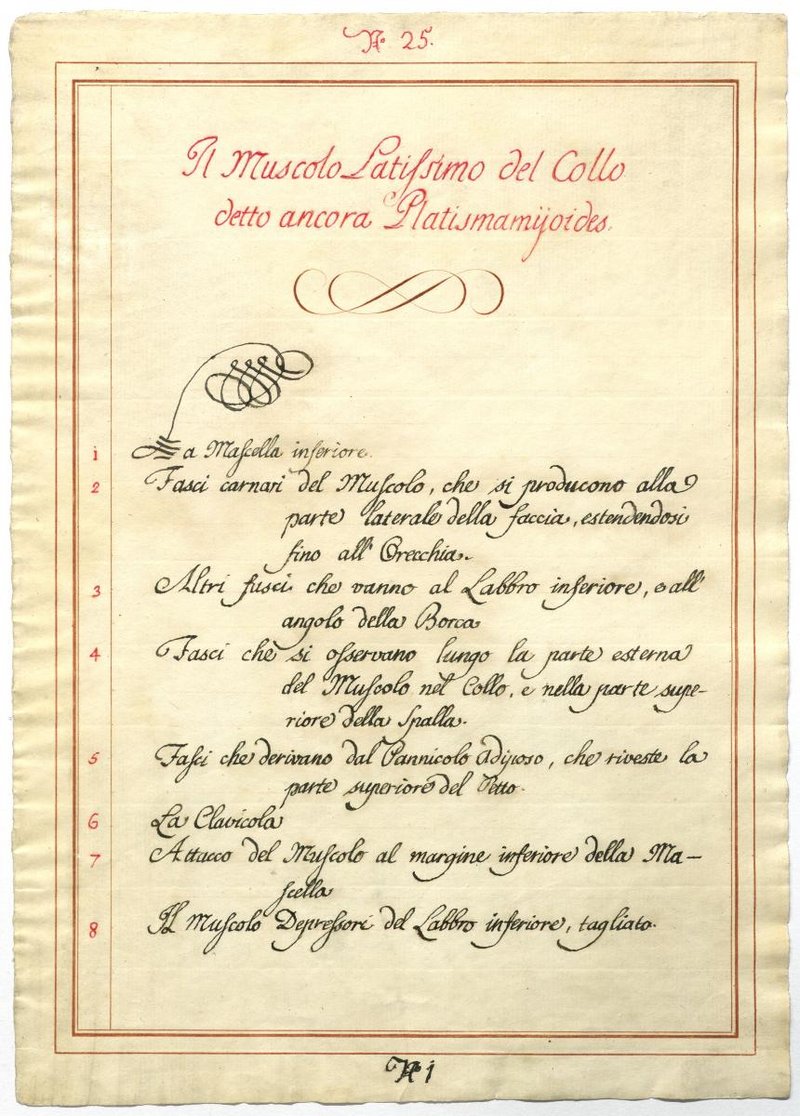 No. 25.
Il Muscolo Latissimo del Collo
detto ancora Platismamijoides.
1 La Mascella inferiore.
2 Fasci carnari del Muscolo, che si producono alla
parte laterale della faccia, estendendosi
fino all' Orecchia.
3 Altri fasci che vanno al Labbro inferiore, e all'
angolo della Bocca
4 Fasci che si osservano lungo la parte esterna
del Muscolo nel Collo, e nella parte supe-
riore della Spalla.
5 Fasci che derivano dal Pannicolo Adiposo, che riveste la
parte superiore del Petto.
6 La Clavicola
7 Attacco del Muscolo al margine inferiore della Ma-
scella
8 Il Muscolo Depressori del Labbro inferiore, tagliato.
No 1